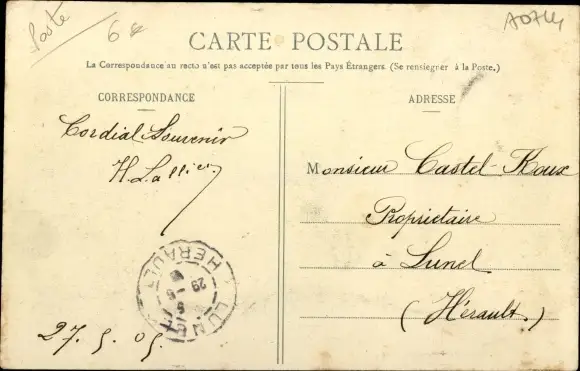 Poste
6 e
A0744
CARTE POSTALE
La Correspondance au recto n'est pas acceptée par tous les Pays Étrangers. (Se renseigner à la Poste.)
CORRESPONDANCE
Cordial Souvenir
H. Lallier
27. 5. 05.
LUNEL
HERAULT
29 - 5
ADRESSE
Monsieur Castel-Roux
Propriétaire
à Lunel
(Hérault.)